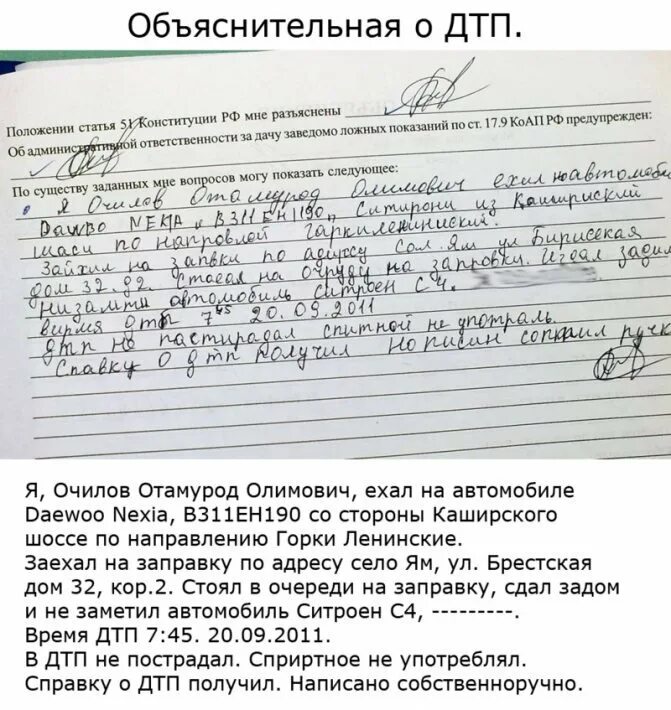 Объяснительная о ДТП.
Положении статья 51 Конституции РФ мне разъяснены
Об административной ответственности за дачу заведомо ложных показаний по ст. 17.9 КоАП РФ предупрежден:
По существу заданных мне вопросов могу показать следующее:
Я Очилов Отамурод Олимович ехил на автомоби
Dawoo NEXIA, В311ЕН190, Ситирони из Кашириский
шаси по направлой гаркиленинский.
Зайхил на запвки по адресу сол. Ям ул Бирисекая
дом 32. д2. Стоеал на очруду на запровки. Игеал задим
Низамти автомобиль ситроен С4.
виримя дтп 7 45 20.09.2011
дтп не пастирадал спитной не упоtраль.
Спавку о дтп получил Нописин сопжил ручк
Я, Очилов Отамурод Олимович, ехал на автомобиле
Daewoo Nexia, В311ЕН190 со стороны Каширского
шоссе по направлению Горки Ленинские.
Заехал на заправку по адресу село Ям, ул. Брестская
дом 32, кор.2. Стоял в очереди на заправку, сдал задом
и не заметил автомобиль Ситроен С4, ---------.
Время ДТП 7:45. 20.09.2011.
В ДТП не пострадал. Сприртное не употреблял.
Справку о ДТП получил. Написано собственноручно.